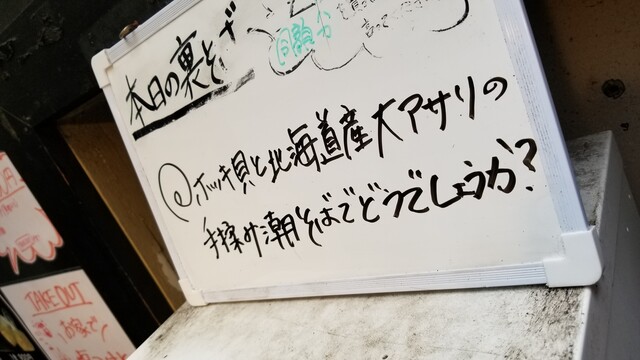 本日の裏そば
ホッキ貝と北海道産大アサリの
手揉み潮そばでどうでしょうか?
TAKE OUT
お家で